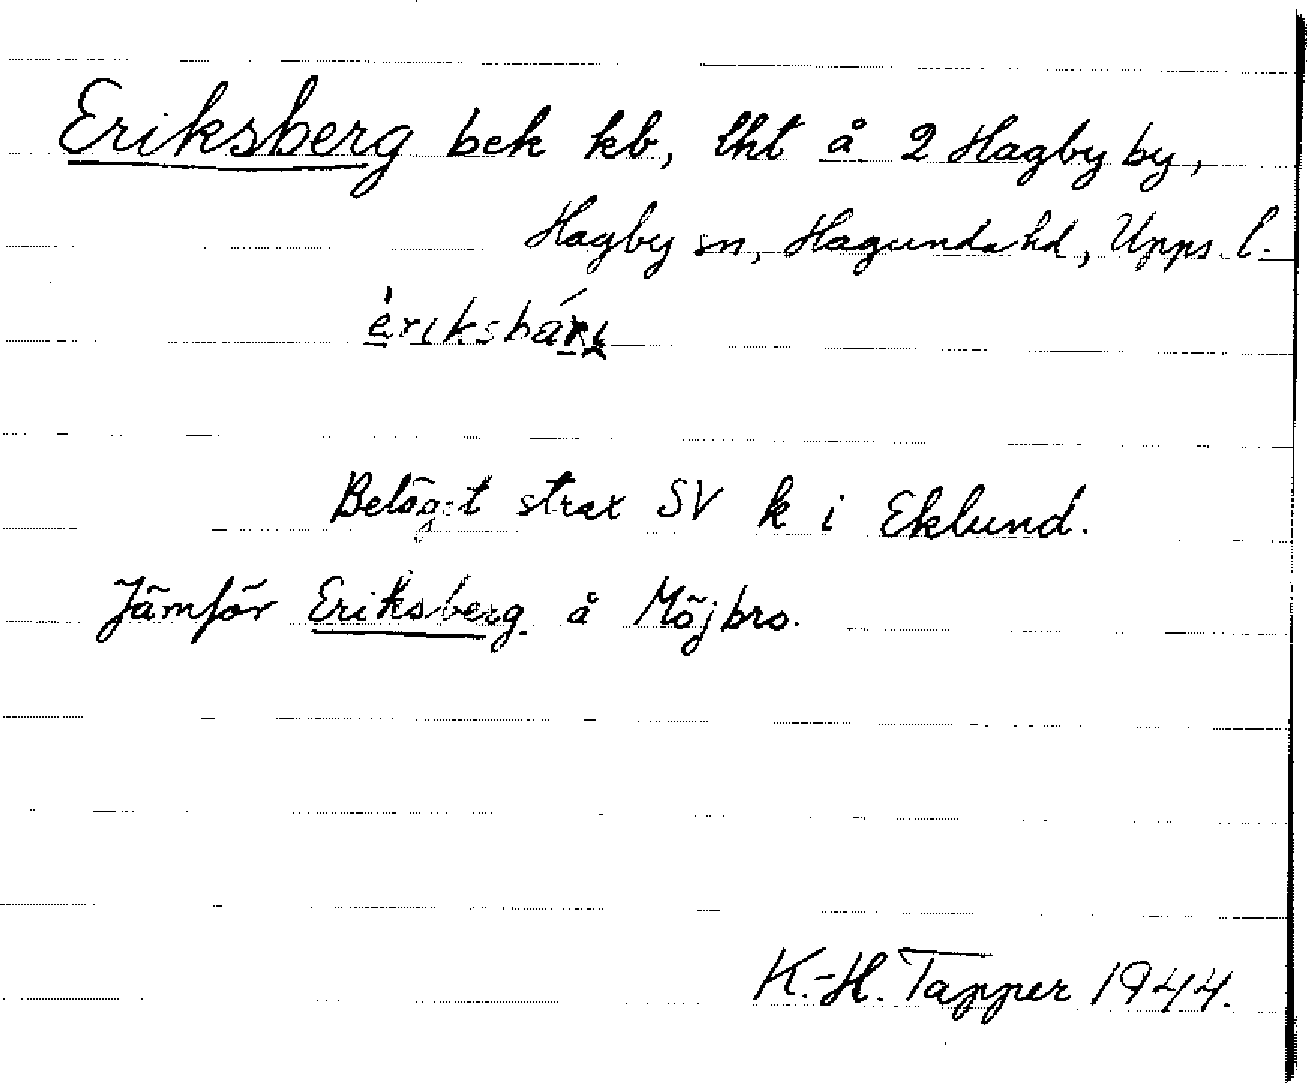 Eriksberg bek kb, lht å 2 Hagby by,
Hagby sn, Hagunda hd, Upps. l.
Beläget strax SV k i Eklund.
Jämför Eriksberg å Möjbro.
K.-H. Tapper 1944.